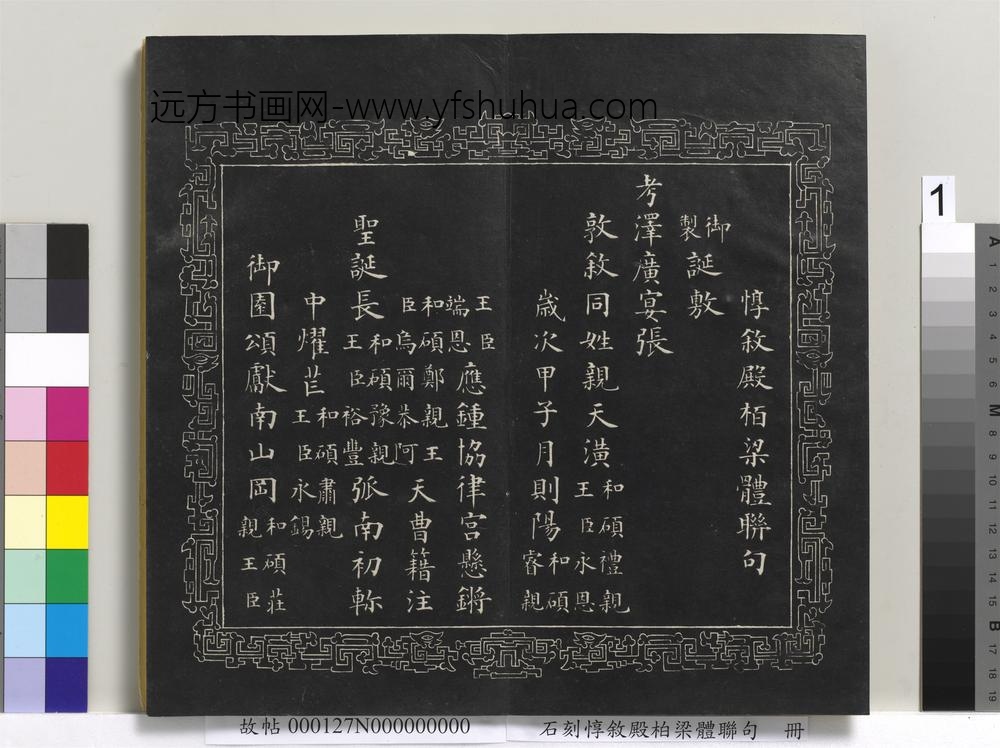 远方书画网-www.yfshuhua.com
惇敘殿柏梁體聯句
御製誕敷
考澤廣宴張
敦敘同姓親天潢和碩禮親王臣永恩
歲次甲子月則陽和碩睿親
王臣端恩應鍾協律宮懸鏘
和碩鄭親王臣烏爾恭阿天曹籍注
聖誕長和碩豫親王臣裕豐弧南初軫
中燿芒和碩肅親王臣永錫
御園頌獻南山岡和碩莊親王臣
1
A 1 2 3 4 5 6 M 8 9 10 11 12 13 14 15 B 17 18 19
故帖 000127N000000000
石刻惇敘殿柏梁體聯句 冊